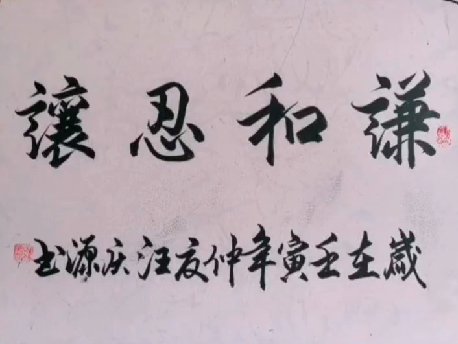 謙和忍讓
歲在壬寅年仲夏汪庆源书